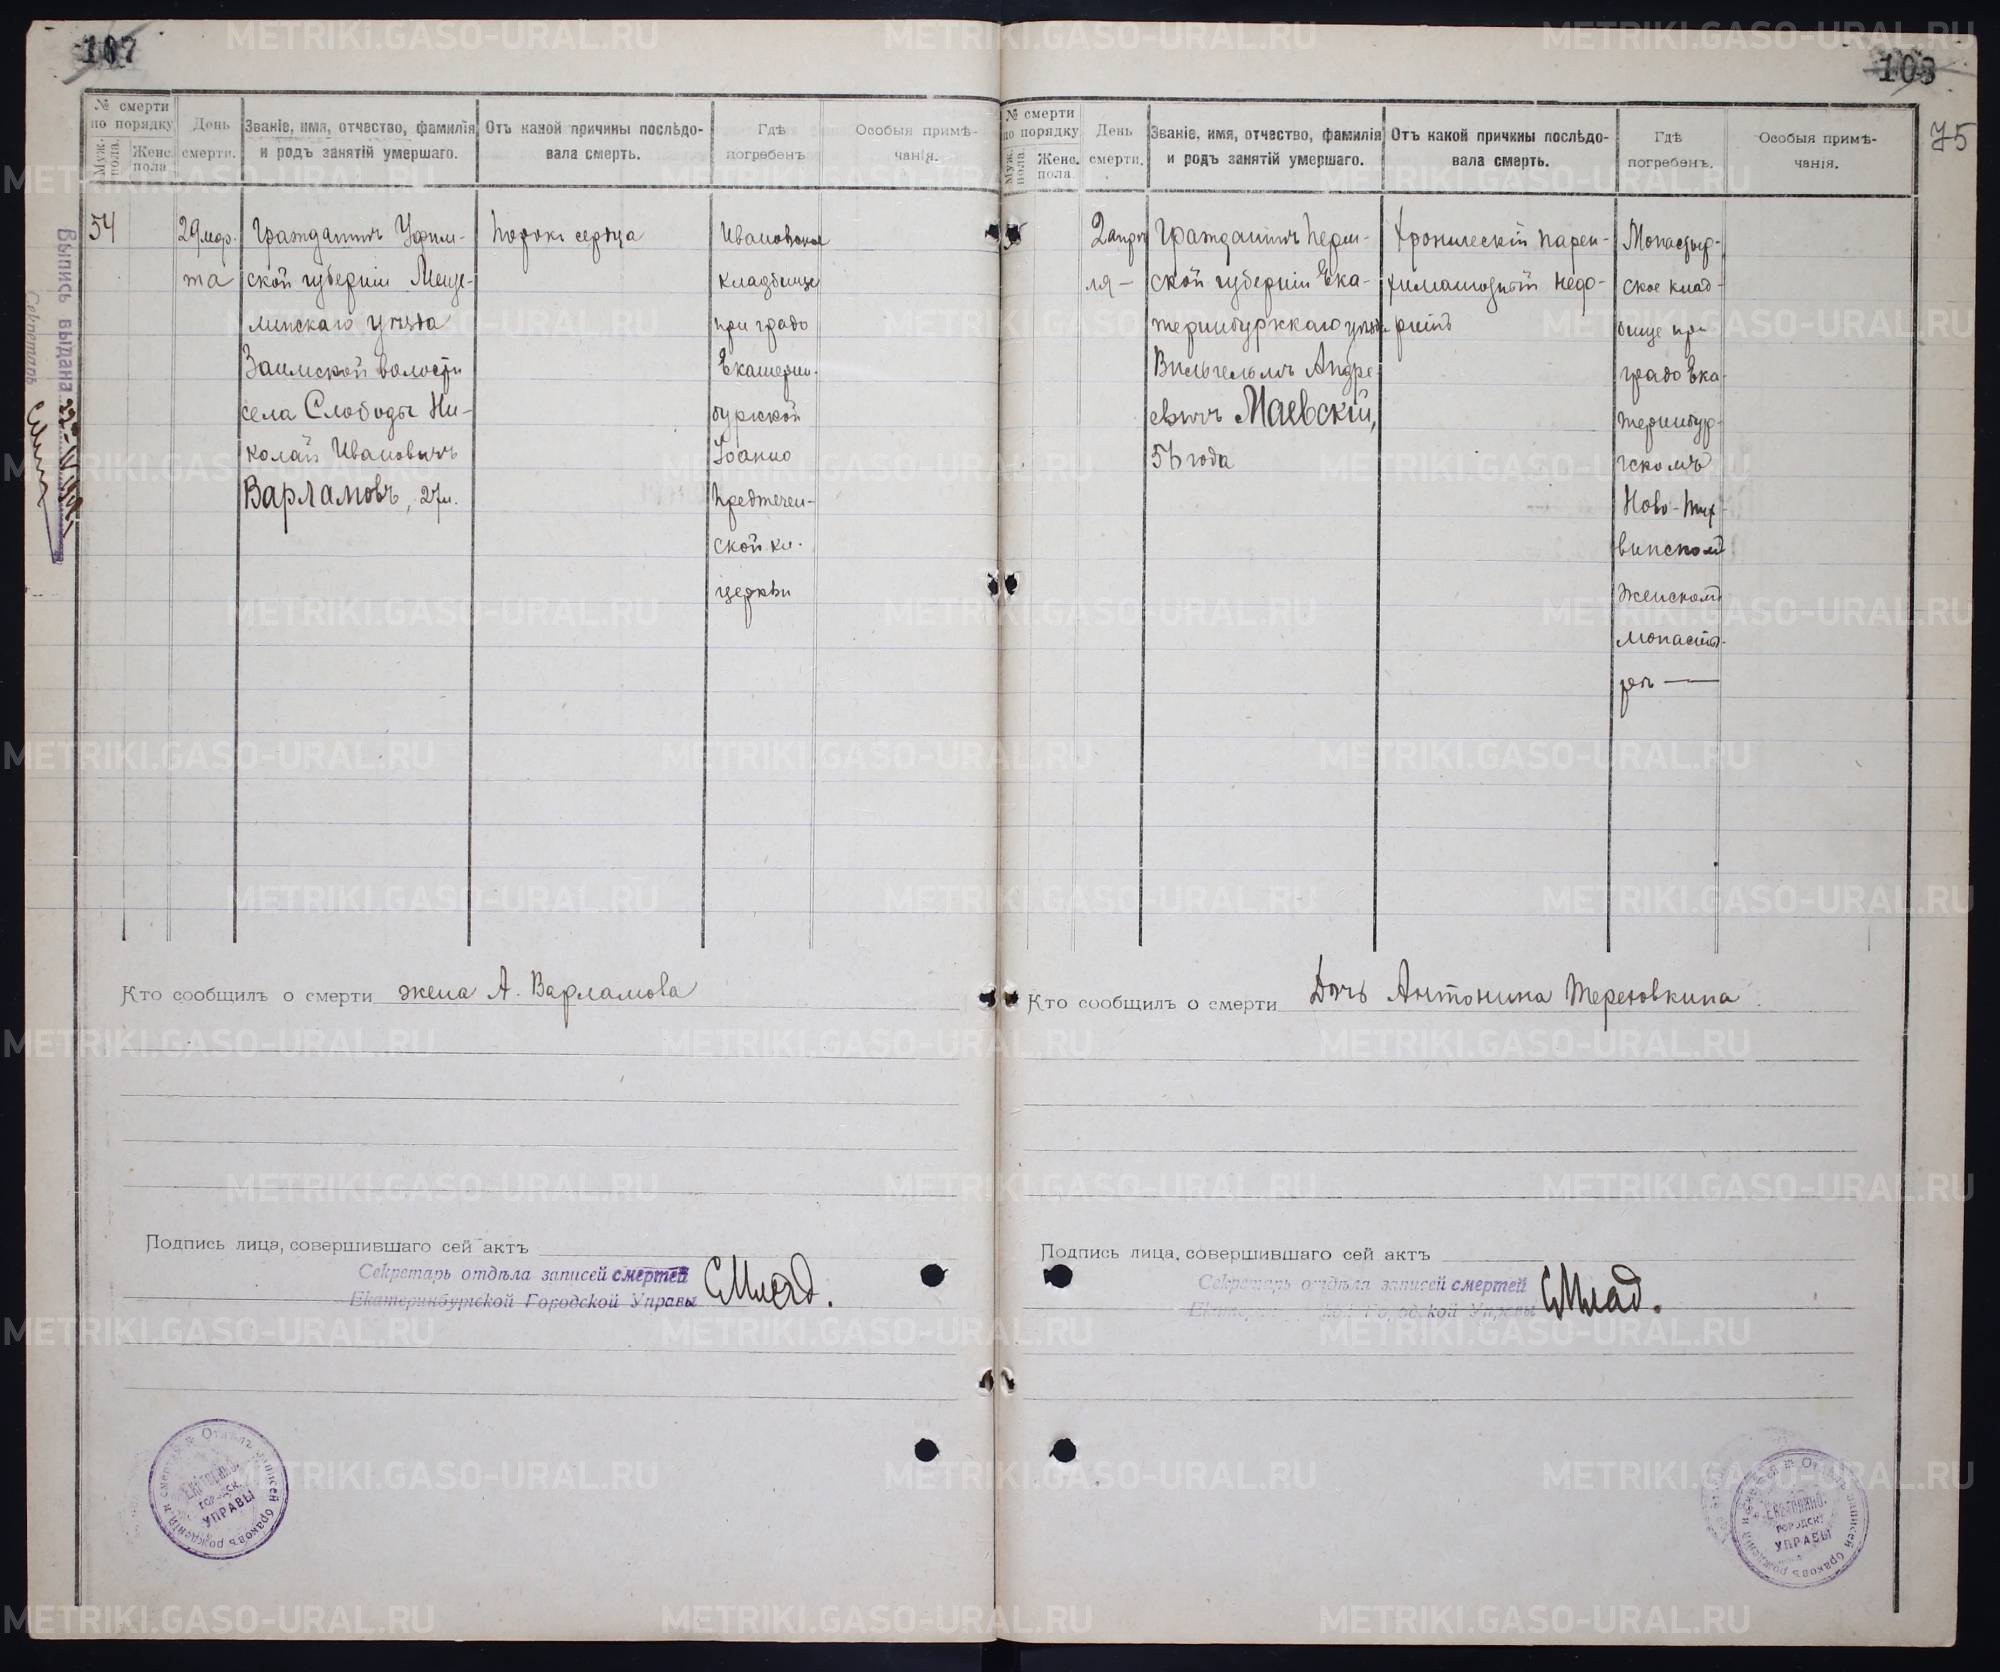 107
№ смерти
по порядку
Муж.
пола.
Женс.
пола
День
смерти.
Званіе, имя, отчество, фамилія
и родъ занятій умершаго.
Отъ какой причины послѣдо-
вала смерть.
Гдѣ
погребенъ
Особыя примѣ-
чанія.
54
29 мар-
та
Гражданинъ Уфим-
ской губерніи Мензе-
линскаго уѣзда
Заимской волости
села Слободы Ни-
колай Ивановичъ
Варламовъ, 27 л.
Порокъ сердца
Ивановское
кладбище
при градо
Екатерин-
бургской
Іоанно
Предтечен-
ской кл.
церкви
Выпись выдана
Секретарь
Кто сообщилъ о смерти жена А. Варламова
Подпись лица, совершившаго сей актъ
Секретарь отдѣла записей смертей
Екатеринбургской Городской Управы СМлад.
Отдѣлъ записей браковъ рожденій и смертей
Екатеринб.
городск.
УПРАВЫ
108
75
№ смерти
по порядку
Муж.
пола.
Женс.
пола.
День
смерти.
Званіе, имя, отчество, фамилія
и родъ занятій умершаго.
Отъ какой причины послѣдо-
вала смерть.
Гдѣ
погребенъ.
Особыя примѣ-
чанія.
2 апрѣ
ля —
Гражданинъ Перм-
ской губерніи Ека-
теринбургскаго уѣзда
Вильгельмъ Андре
евичъ Маевскій,
56 года
Хроническій парен-
химатозный нефр-
ритъ
Монастыр-
ское клад-
бище при
градо Ека-
теринбур-
гскомъ
Ново-Тих-
винском
женском
монасты-
рѣ —
Кто сообщилъ о смерти Дочь Антонина Терековкина
Подпись лица, совершившаго сей актъ
Секретарь отдѣла записей смертей
Городской Управы СМлад.
Отдѣлъ записей браковъ рожденій и смертей
Екатеринб.
городск.
УПРАВЫ
METRIKI.GASO-URAL.RU